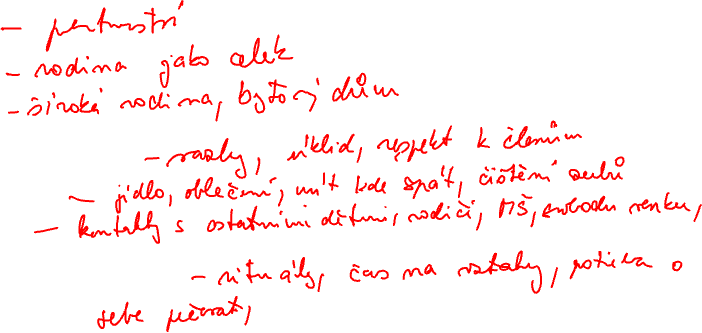 - partnerství
- rodina jako celek
- široká rodina, bytový dům
- vazby, úklid, respekt k členům
- jídlo, oblečení, mít kde spát, čištění zubů
- kontakty s ostatními dětmi, rodiči, MŠ, svoboda venku,
- rituály, čas na vztahy, potřeba o
sebe pečovat,